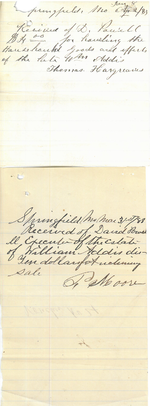 Springfield, Mo
Received of D. Powell
for handling the
Household Goods and effects
of the late Wm Addis
Thomas Hargreaves
Springfield Mo Mar 3
Received of David Powe
ll Executor of the estate
of William Addis de
Ten dollars
sale
Moore